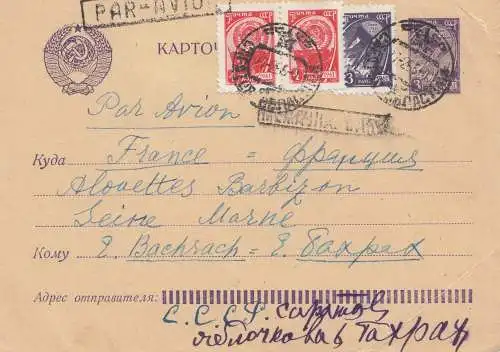 PAR-AVION
КАРТОЧ
ПОЧТА СССР ПОЧТА СССР ПОЧТА СССР
3
Par Avion
Куда France = Франция
Alouettes Barbizon
Seine Marne
Кому E. Bachrach = Е. Бахрах
Адрес отправителя:
С.С.С.Р. Саратов
Яблочкова 6 Бахрах